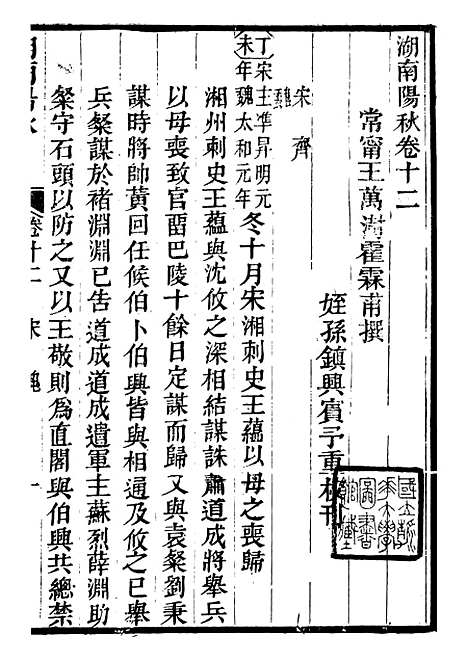 湖南陽秋卷十二
常甯王萬澍霍霖甫撰
姪孫鎮興賓予重校刊
宋 齊
魏
丁未 宋主準昇明元年魏太和元年 冬十月宋湘刺史王蘊以母之喪歸
湘州刺史王蘊與沈攸之深相結謀誅蕭道成將舉兵
以母喪致官畱巴陵十餘日定謀而歸又與袁粲劉秉
謀時將帥黃回任候伯卜伯興皆與相通及攸之已舉
兵粲謀於褚淵淵已告道成道成遣軍主蘇烈薛淵助
粲守石頭以防之又以王敬則爲直閣與伯興共總禁
湖南陽秋 卷十二 宋 魏 一